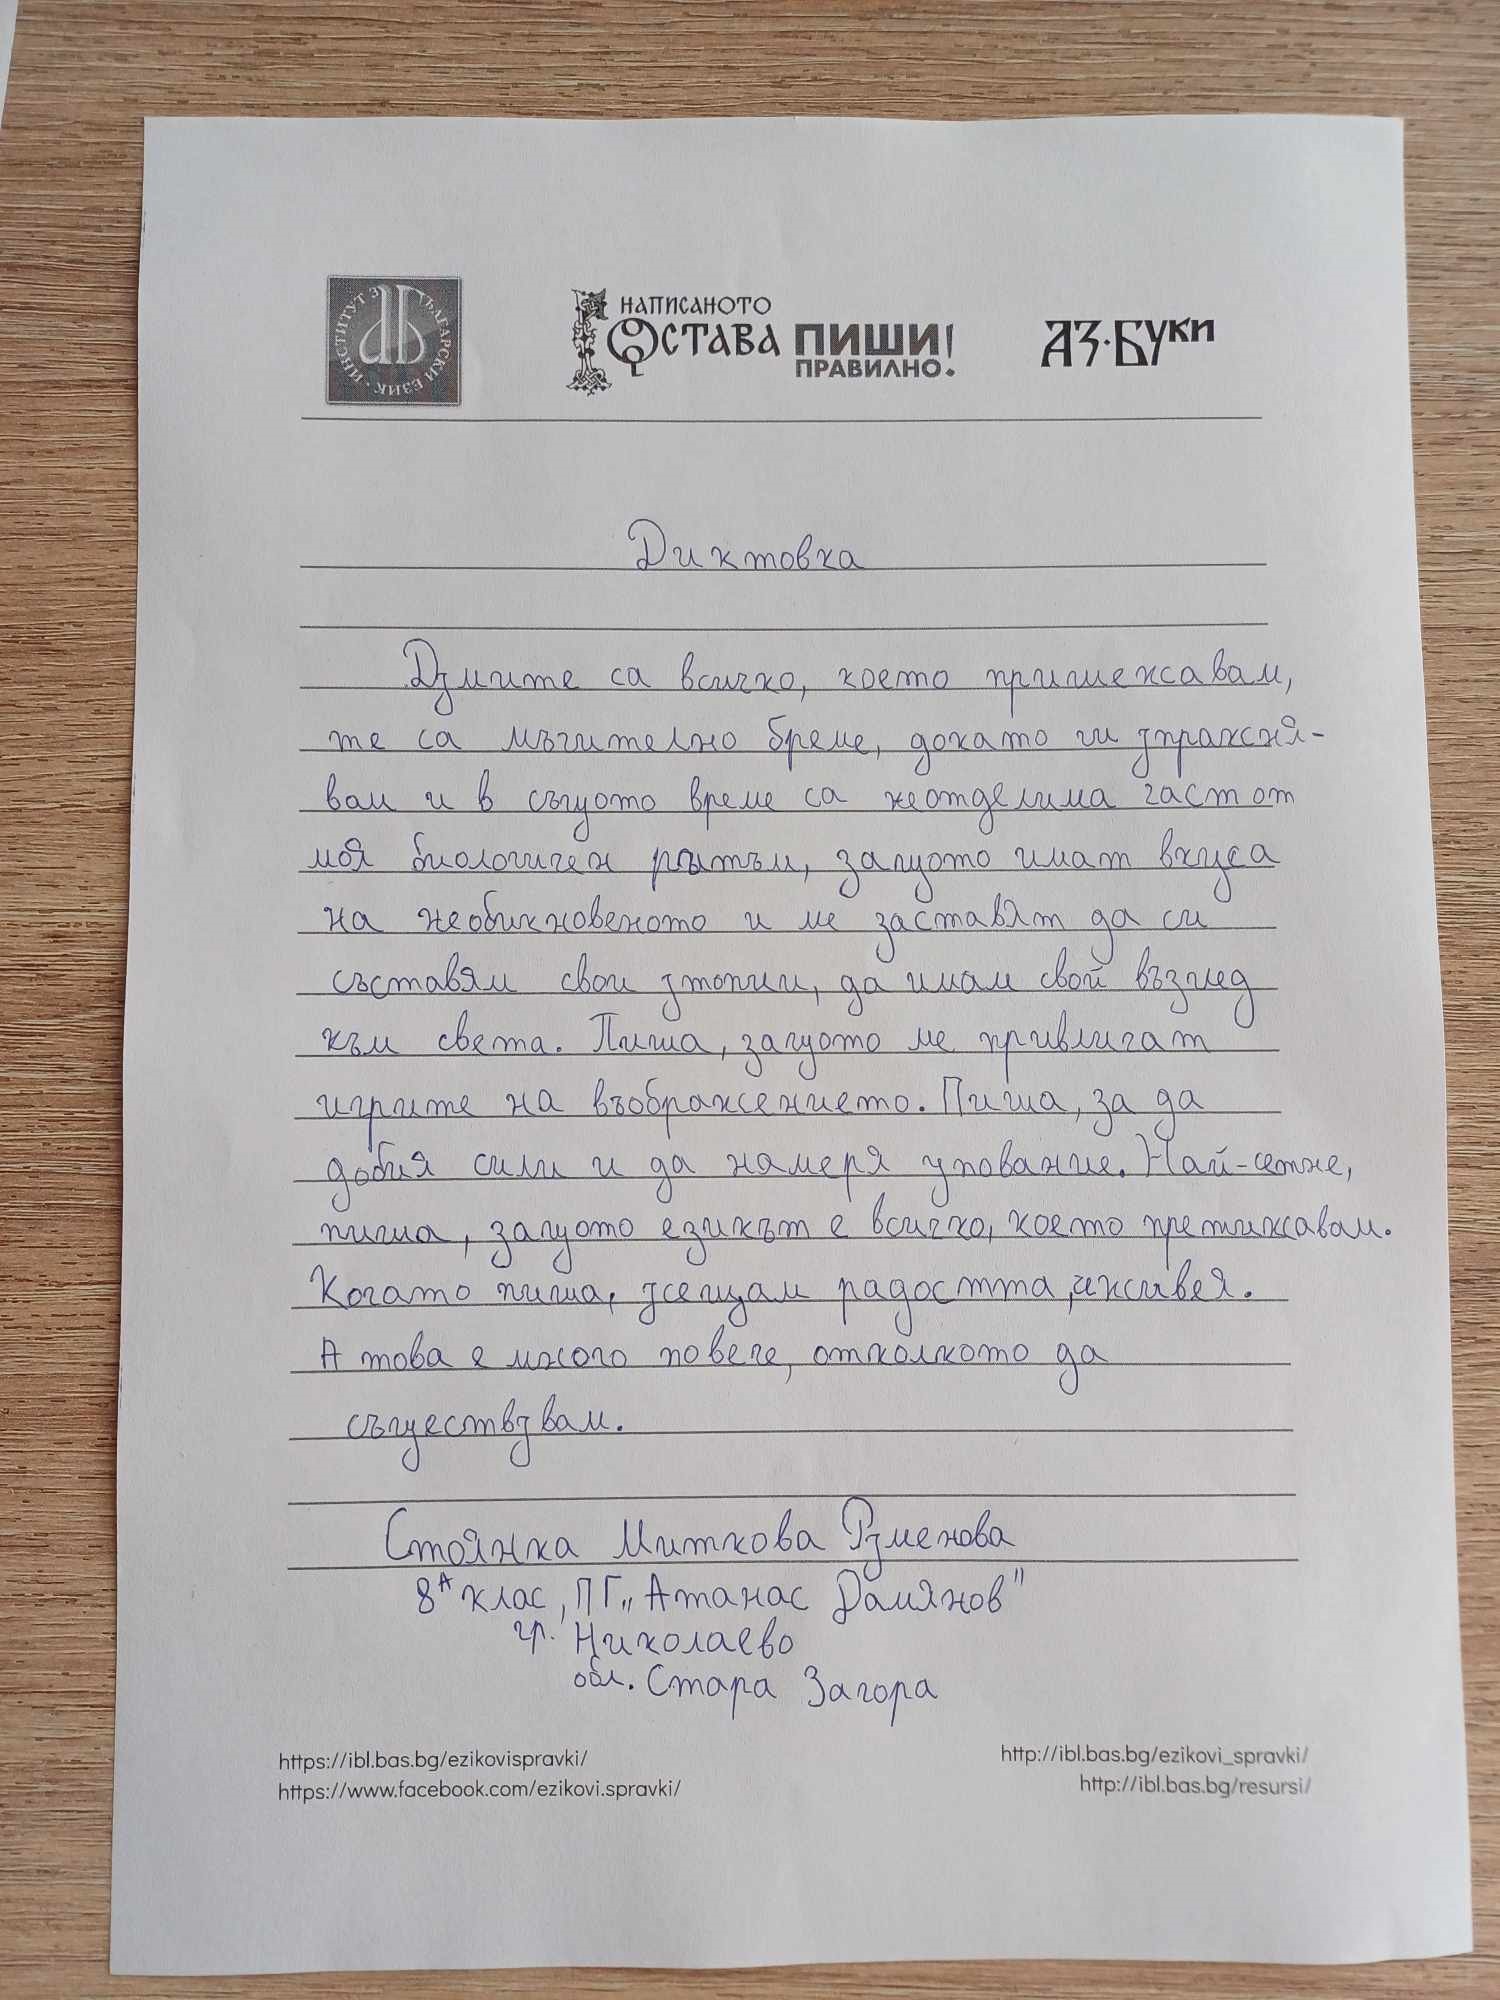 ИНСТИТУТ ЗА БЪЛГАРСКИ ЕЗИК
НАПИСАНОТО
ОСТАВА ПИШИ
ПРАВИЛНО!
АЗ·БУКИ
Диктовка
Думите са всичко, което притежавам,
те са мъчително бреме, докато ги упражня-
вам и в същото време са неотделима част от
моя биологичен ритъм, защото имат вкуса
на необикновеното и ме заставят да си
съставям свои утопии, да имам свой възглед
към света. Пиша, защото ме привличат
игрите на въображението. Пиша, за да
добия сили и да намеря упование. Най-сетне,
пиша, защото езикът е всичко, което претижавам.
Когато пиша, усещам радостта, живея.
А това е много повече, отколкото да
съществувам.
Стоянка Миткова Руменова
8А клас, ПГ „Атанас Дамянов"
гр. Николаево
обл. Стара Загора
https://ibl.bas.bg/ezikovispravki/ http://ibl.bas.bg/ezikovi_spravki/
https://www.facebook.com/ezikovi.spravki/ http://ibl.bas.bg/resursi/